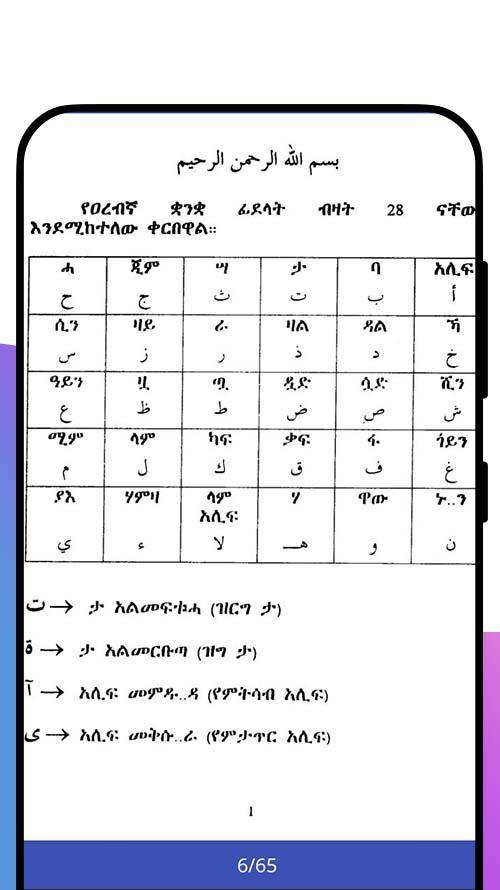 بسم الله الرحمن الرحيم
የዐረብኛ ቋንቋ ፊደላት ብዛት 28 ናቸው
እንደሚከተለው ቀርበዋል።
ሓ ጂም ሣ ታ ባ አሊፍ
ح ج ث ت ب أ
ሲን ዛይ ራ ዛል ዳል ኻ
س ز ر ذ د خ
ዓይን ዟ ጧ ዷድ ሷድ ሺን
ع ظ ط ض ص ش
ሚም ላም ካፍ ቃፍ ፋ ጎይን
م ل ك ق ف غ
ያእ ሃምዛ ላም አሊፍ ሃ ዋው ኑ..ን
ي ء لا هـ و ن
ت → ታ አልመፍቱሓ (ዝርግ ታ)
ة → ታ አልመርቡጣ (ዝግ ታ)
آ → አሊፍ መምዱ..ዳ (የምትሳብ አሊፍ)
ى → አሊፍ መቅሱ..ራ (የምታጥር አሊፍ)
1
6/65